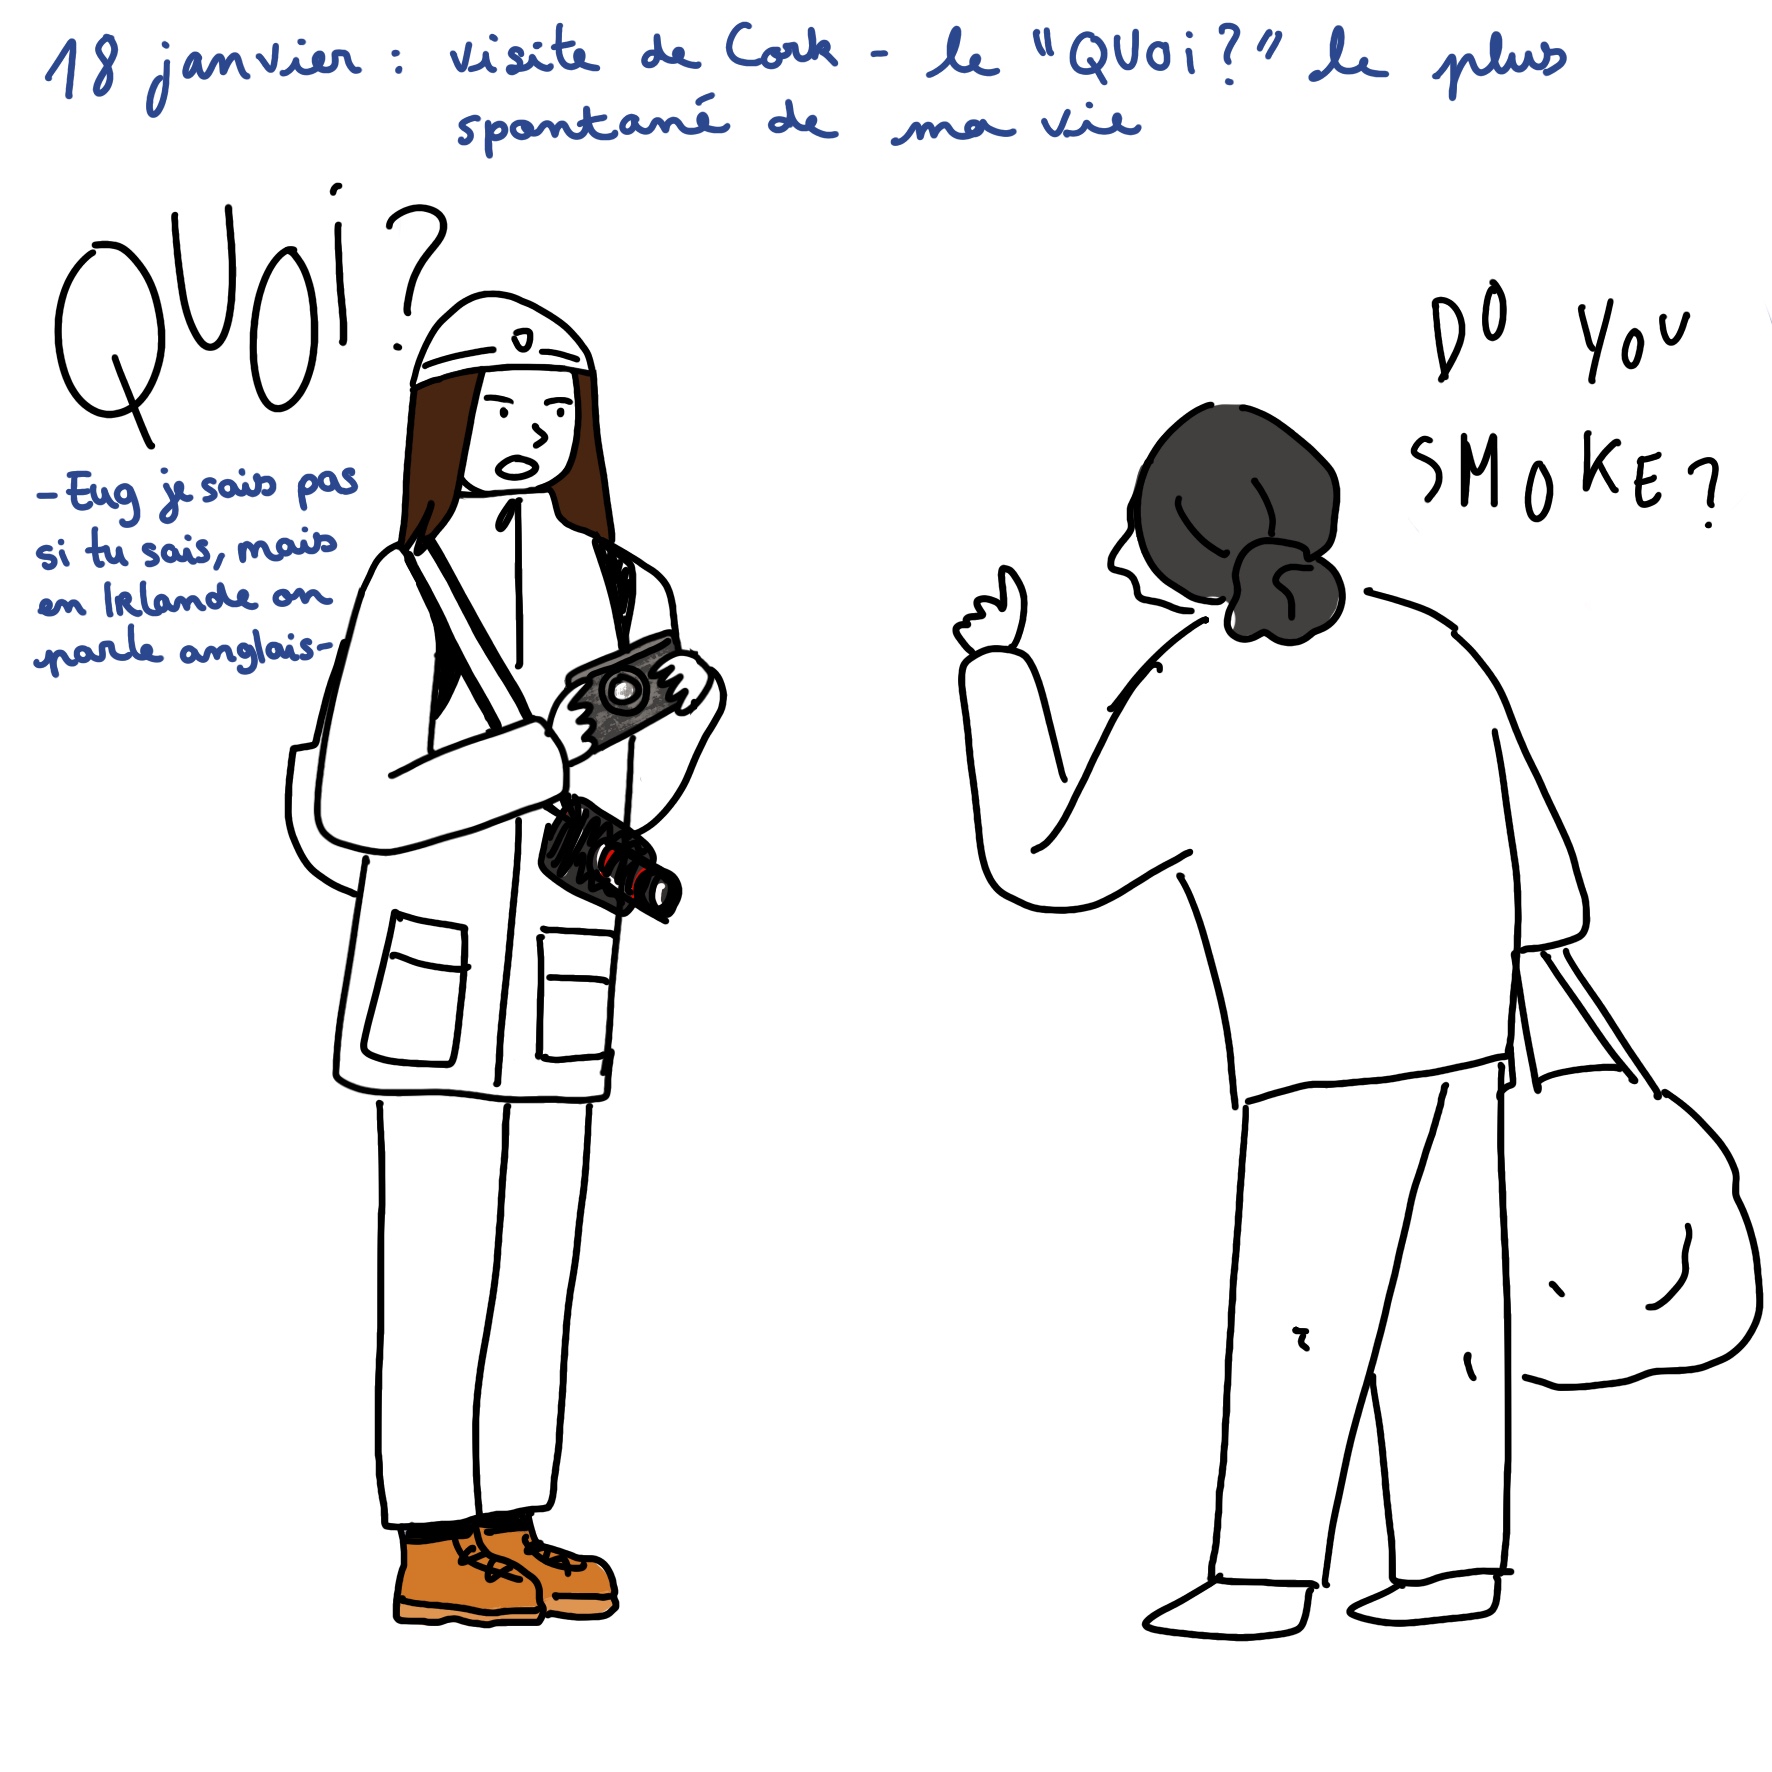 18 janvier : visite de Cork - le "QUOi ?" le plus
spontané de ma vie
QUOi ?
DO YOU
SMOKE ?
- Eug je sais pas
si tu sais, mais
en Irlande on
parle anglais -